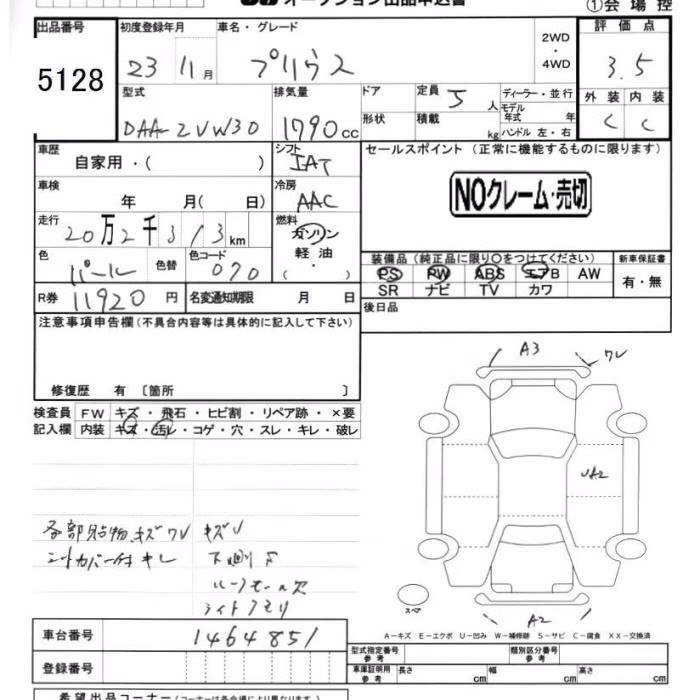 オークション出品申込書
①会場控
出品番号
5128
初度登録年月
23 11月
車名・グレード
プリウス
2WD
・
4WD
評価点
3.5
外装 内装
C C
型式
DAA-ZVW30
排気量
1790cc
ドア
形状
定員 5人
積載 kg
ディーラー・並行
モデル
年式 年
ハンドル 左・右
車歴
自家用・( )
シフト
IAT
セールスポイント (正常に機能するものに限ります)
NOクレーム・売切
車検
年 月( 日)
冷房
AAC
走行
20万2千313km
燃料
ガソリン
軽油
( ・ )
色
パール
色替
色コード
070
装備品(純正品に限り○をつけてください)
PS PW ABS エアB AW
SR ナビ TV カワ
新車保証書
有・無
R券 11920円
名変通知期限 月 日
後日品
注意事項申告欄(不具合内容等は具体的に記入して下さい)
修復歴 有 〔箇所 〕
検査員
記入欄
FW キズ・飛石・ヒビ割・リペア跡・×要
内装 キズ・汚レ・コゲ・穴・スレ・キレ・破レ
A3
ワレ
UA2
A2
スペア
各部貼物キズワレ キズU
シートカバー付 キレ 下廻りサ
ルーフモール欠
ライトクモリ
A-キズ E-エクボ U-凹み W-補修跡 S-サビ C-腐食 XX-交換済
車台番号
1464851
登録番号
型式指定番号
参考
類別区分番号
参考
車庫証明用
参考
長さ cm 幅 cm 高さ cm
希望出品コーナー(コーナーは各会場により異なります。)